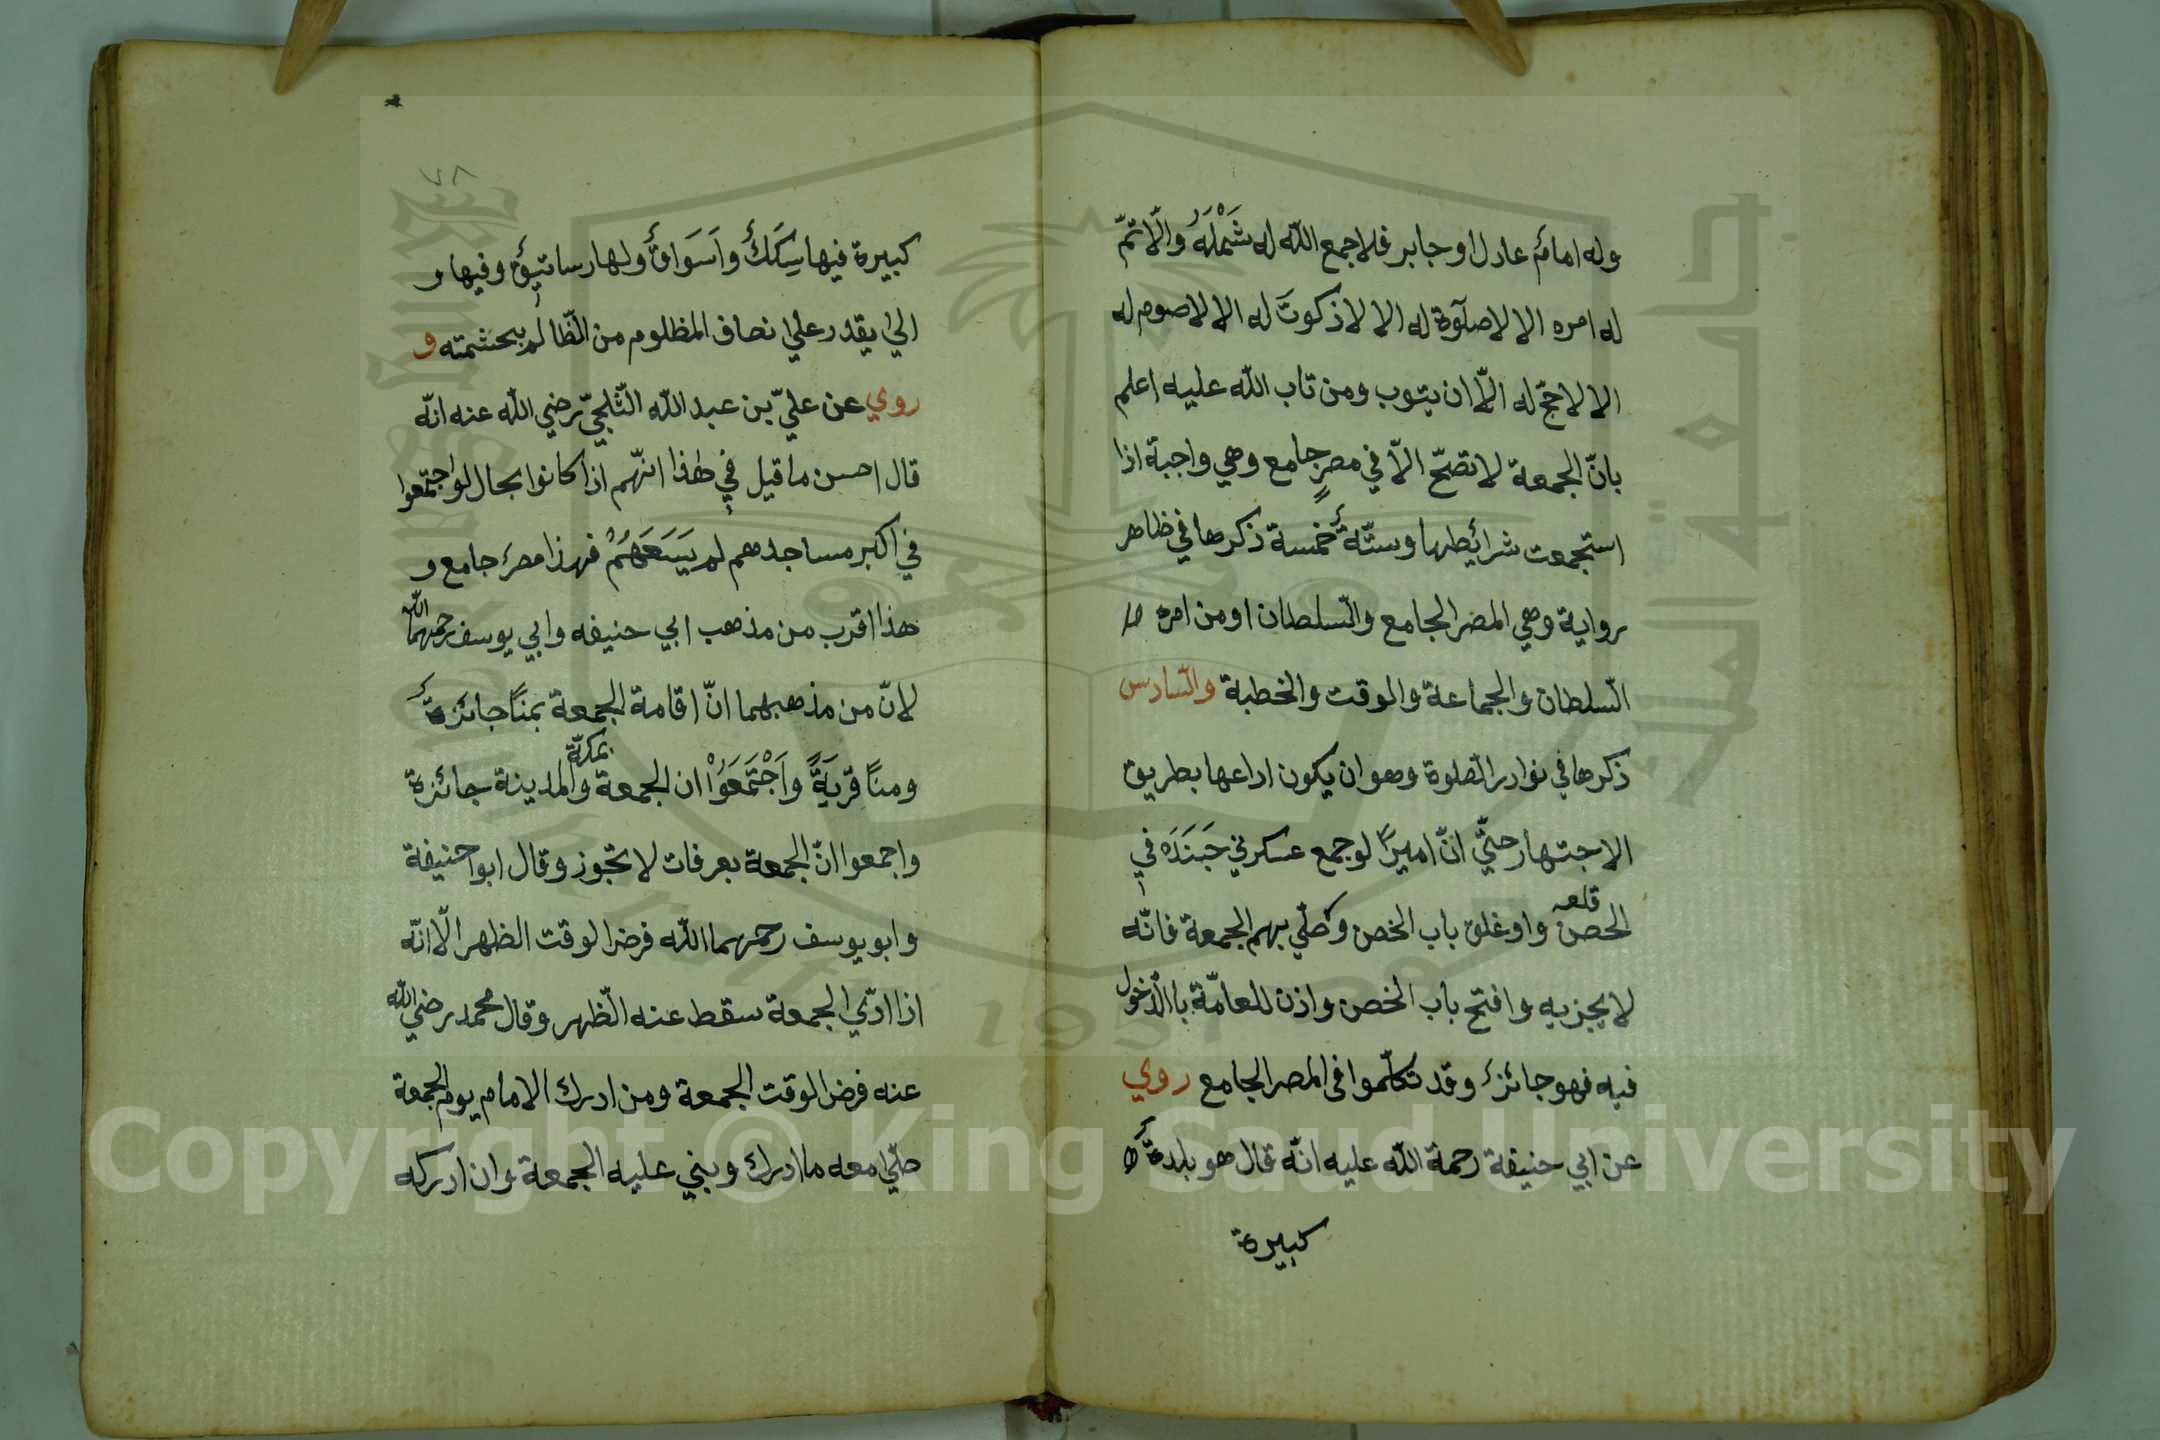 وله امامٌ عادل او جابر فلا جمع الله له شَمْلَهُ والّا تمّ
له امره الا لا صلٓوة له الا لا ذكوتَ له الا لا صوم له
الا لا حجّ له الّا ان يتوب ومن تاب الله عليه اعلم
بانّ الجمعة لا تصحّ الّا في مصرٍ جامع وهي واجبة اذا
استجمعت شرائطها وستّةٌ خمسة ذكرها في ظاهر
رواية وهي المصر الجامع والسّلطان او من امره
السّلطان والجماعة والوقت والخطبة والسّادس
ذكرها في نوادر الصّلوة وهو ان يكون اداءها بطريق
الاجتهار حتّي انّ اميرًا لو جمع عسكر في جَبَنَدَه في
قلعه
الحصن واوغلق باب الخصن وصلّي بهم الجمعة فانّه
لا يجزيه وافتح باب الخصن واذن للعامّة باالدّخول
فيه فهو جائزٌ وقد تكلّموا فى المصر الجامع روي
عن ابي حنيفة رحمة الله عليه انّه قال هو بلدةٌ
كبيرة
٧٨
كبيرة فيها سِكَكٌ واَسَوَاقٌ ولها رساتيقٌ وفيها و
الي يقدر علي انصاف المظلوم من الظّالم بحشمته و
روي عن عليّ بن عبد الله الثّلجيّ رضي الله عنه انّه
قال احسن ما قيل في هذا انّهم اذا كانوا بحال لو اجتمعوا
في اكبر مساجدهم لم يَسَعَهُمْ فهذا مصرٌ جامع و
هذا اقرب من مذهب ابي حنيفه وابي يوسف رحمهما الله
لانّ من مذهبهما انّ اقامة الجمعة بمنًا جائزةٌ
ومنًا قريَةً واَجْتَمَعَوُاْ ان الجمعة بمكّة والمدينة جائزة
واجمعوا انّ الجمعة بعرفات لا تجوز وقال ابوا حنيفة
وابو يوسف رحمهما الله فرض الوقت الظهر الّا انّه
اذا ادّي الجمعة سقط عنه الظّهر وقال محمد رضي الله
عنه فرض الوقت الجمعة ومن ادرك الامام يوم الجمعة
صلّي معه ما ادرك وبني عليه الجمعة وان ادركه
جامعة الملك سعود
King Saud University
1957
Copyright © King Saud University